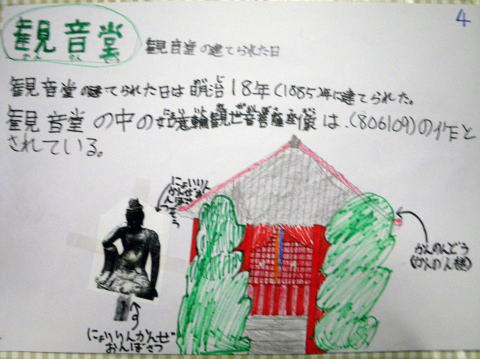 4
観音堂
かん のん どう
観音堂の建てられた日
観音堂の建てられた日は明治18年(1885)年に建てられた。
観見音堂の中の如意輪観世音菩薩座像は.(806109)の作と
されている。
にょいりん
かんぜお
んぼさつ
ぞう
にょいりんかんぜ
おんぼさつ
かんのんどう
(かんのん様)